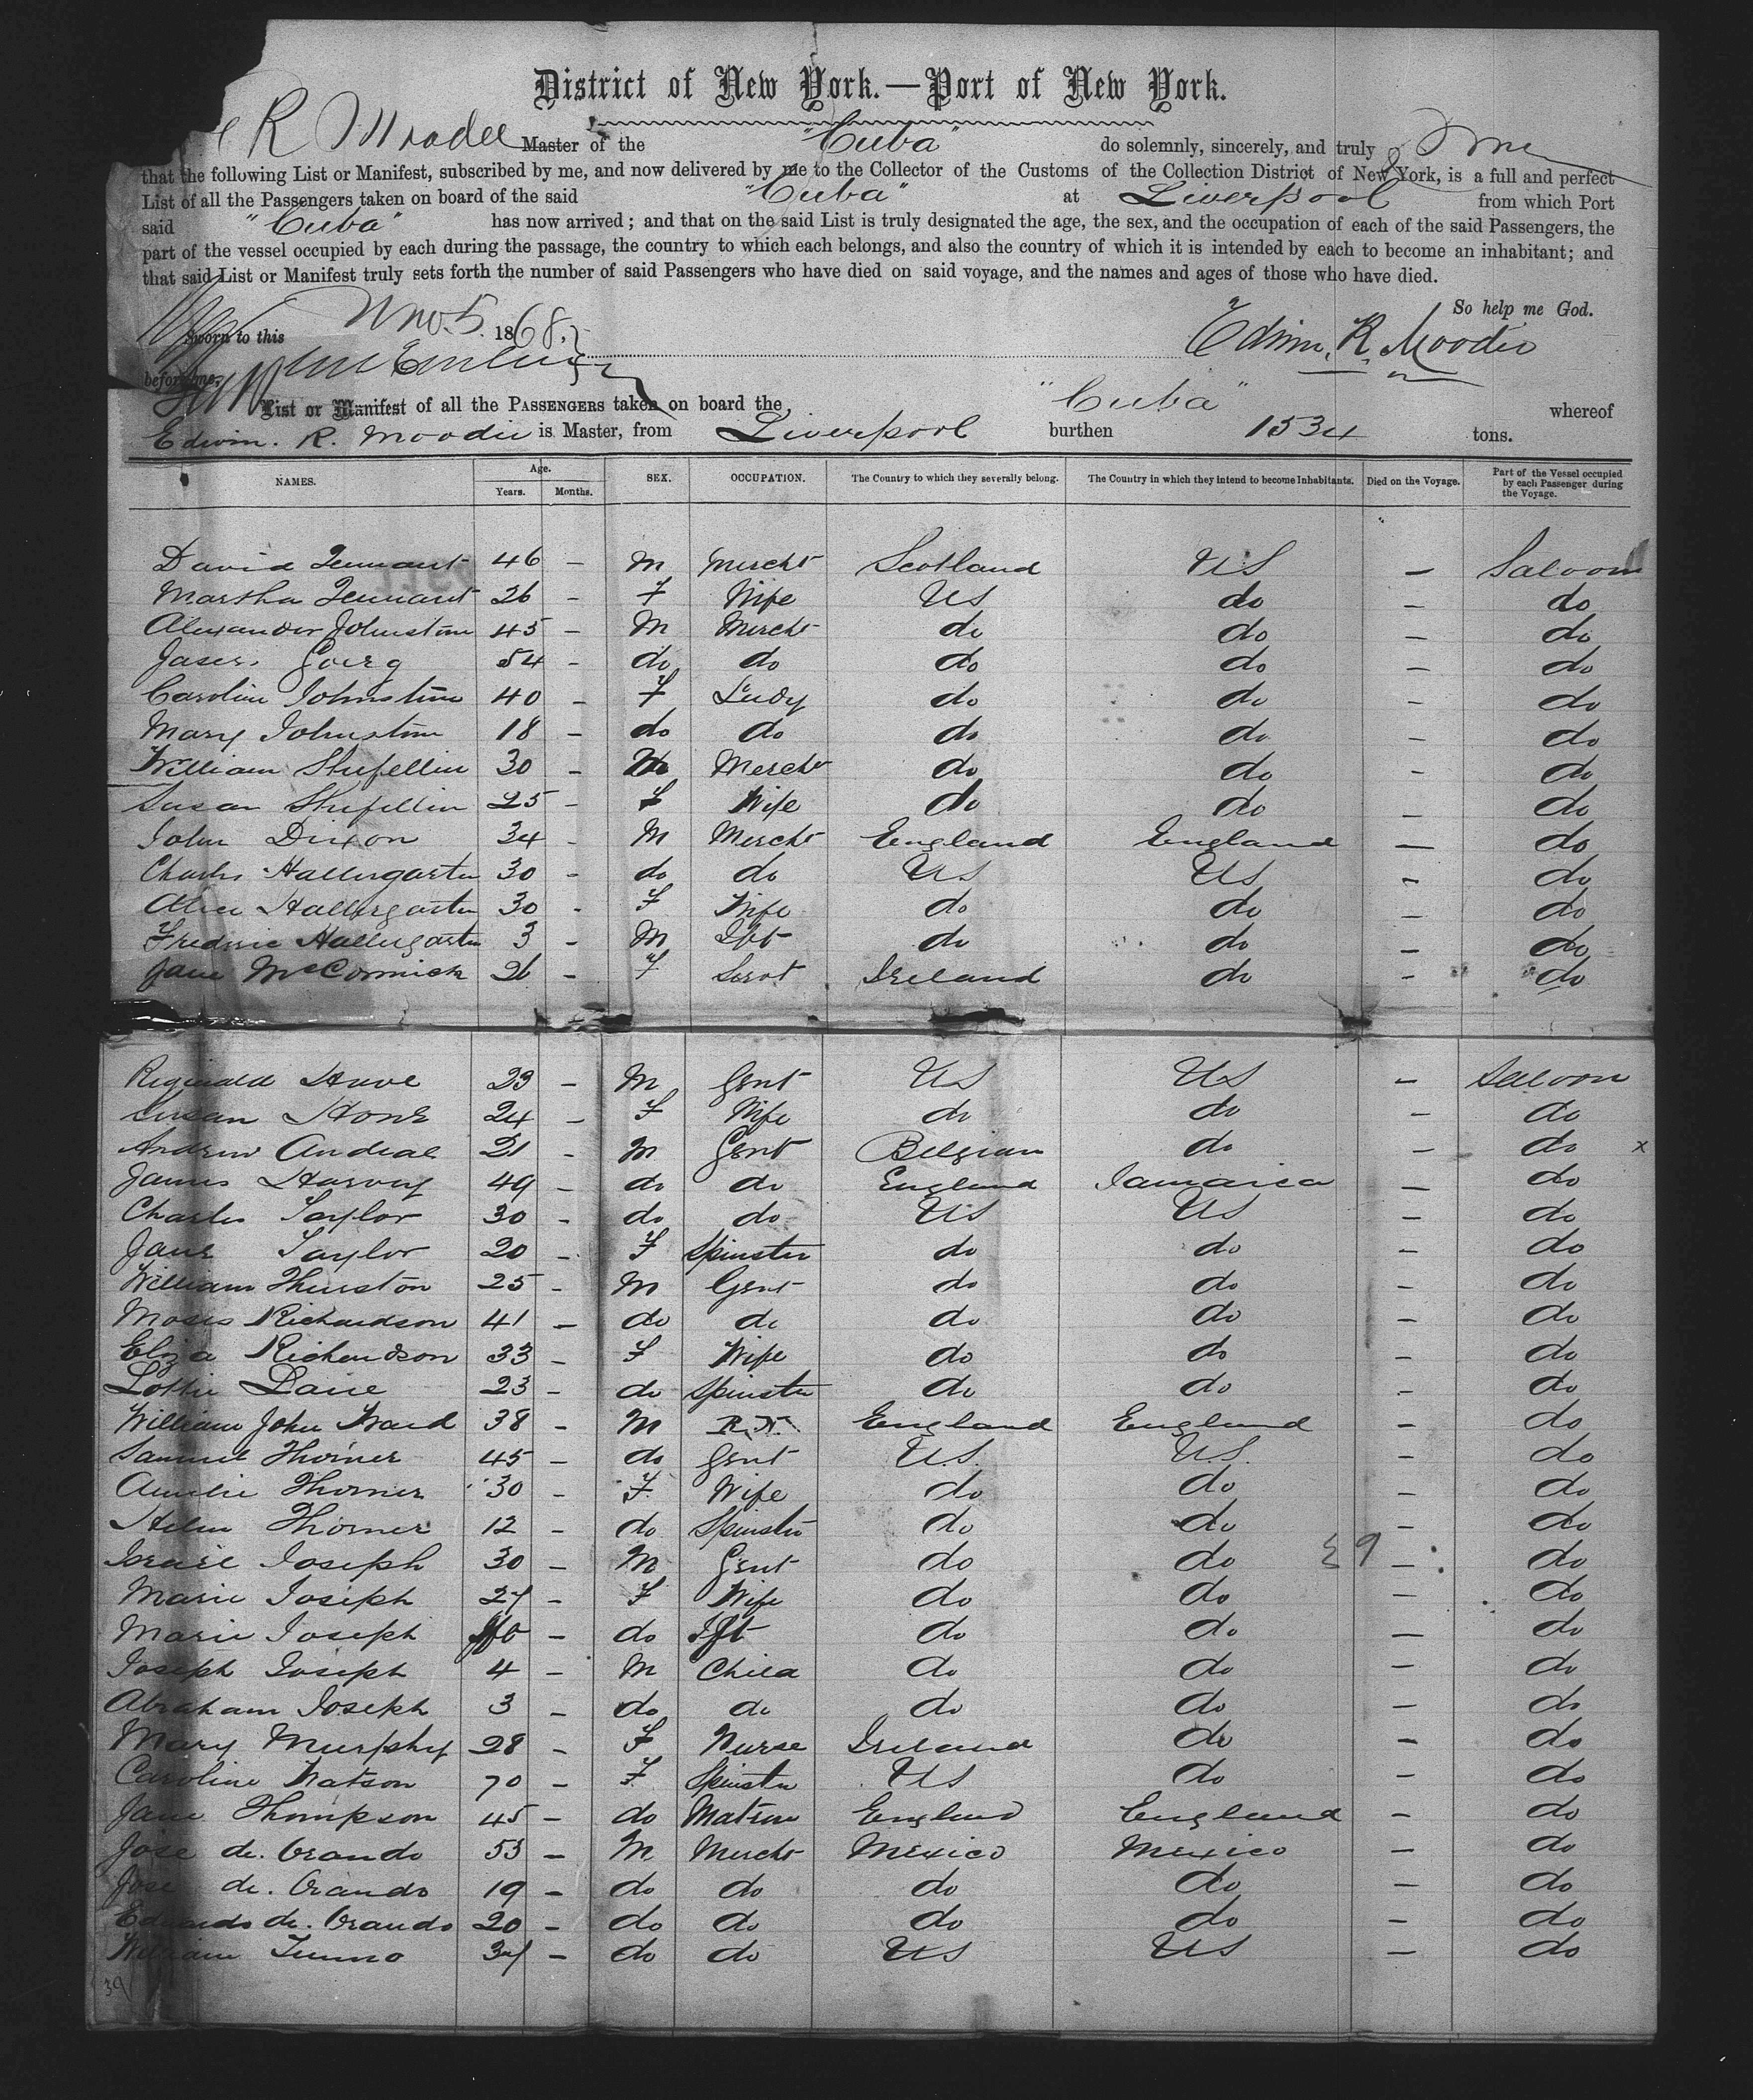 District of New York.—Port of New York.
R Moodie Master of the "Cuba" do solemnly, sincerely, and truly
that the following List or Manifest, subscribed by me, and now delivered by me to the Collector of the Customs of the Collection District of New York, is a full and perfect
List of all the Passengers taken on board of the said "Cuba" at Liverpool from which Port
said "Cuba" has now arrived; and that on the said List is truly designated the age, the sex, and the occupation of each of the said Passengers, the
part of the vessel occupied by each during the passage, the country to which each belongs, and also the country of which it is intended by each to become an inhabitant; and
that said List or Manifest truly sets forth the number of said Passengers who have died on said voyage, and the names and ages of those who have died.
So help me God.
Sworn to this Nov 5 1868. Edwin. R. Moodie
before me,
List or Manifest of all the PASSENGERS taken on board the "Cuba" whereof
Edwin. R. Moodie is Master, from Liverpool burthen 1534 tons.
NAMES. Age. Years. Months. SEX. OCCUPATION. The Country to which they severally belong. The Country in which they intend to become Inhabitants. Died on the Voyage. Part of the Vessel occupied by each Passenger during the Voyage.
David Tennant 46 - M Mercht Scotland US - Saloon
Martha Tennant 26 - F Wife US do - do
Alexander Johnstone 45 - M Mercht do do - do
54 - do do do do - do
Caroline Johnstone 40 - F Lady do do - do
Mary Johnstone 18 - do do do do - do
William 30 - M Mercht do do - do
Susan 25 - F Wife do do - do
John Dixon 34 - M Mercht England England - do
Charles Hallergarten 30 - do do US US - do
Alice Hallergarten 30 - F Wife do do - do
Fredric Hallergarten 3 - M do do - do
Jane McCormick 26 - F Servt Ireland do - do
Reginald Howe 23 - M Gent US US - Saloon
Susan Hone 24 - F Wife do do - do
Andrew 21 - M Gent Belgian do - do x
James Harvey 49 - do do England Jamaica - do
Charles Taylor 30 - do do US US - do
Jane Taylor 20 - F Spinster do do - do
William Thurston 25 - M Gent do do - do
Moses Richardson 41 - do do do do - do
Eliza Richardson 33 - F Wife do do - do
Lottie 23 - do Spinster do do - do
William John Ward 38 - M R.N. England England - do
Samuel Thorner 45 - do Gent U.S. U.S. - do
Amelie Thorner 30 - F Wife do do - do
Helen Thorner 12 - do Spinster do do - do
Israel Joseph 30 - M Gent do do - do
Marie Joseph 27 - F Wife do do - do
Marie Joseph - do Ift do do - do
Joseph Joseph 4 - M Child do do - do
Abraham Joseph 3 - do do do do - do
Mary Murphy 28 - F Nurse Ireland do - do
Caroline Watson 70 - F. Spinster US do - do
Jane Thompson 45 - do Matron England England - do
Jose de. Ovando 53 - M Mercht Mexico Mexico - do
Jose de. Ovando 19 - do do do do - do
Eduardo de. Ovando 20 - do do do do - do
William 34 - do do US US - do
39